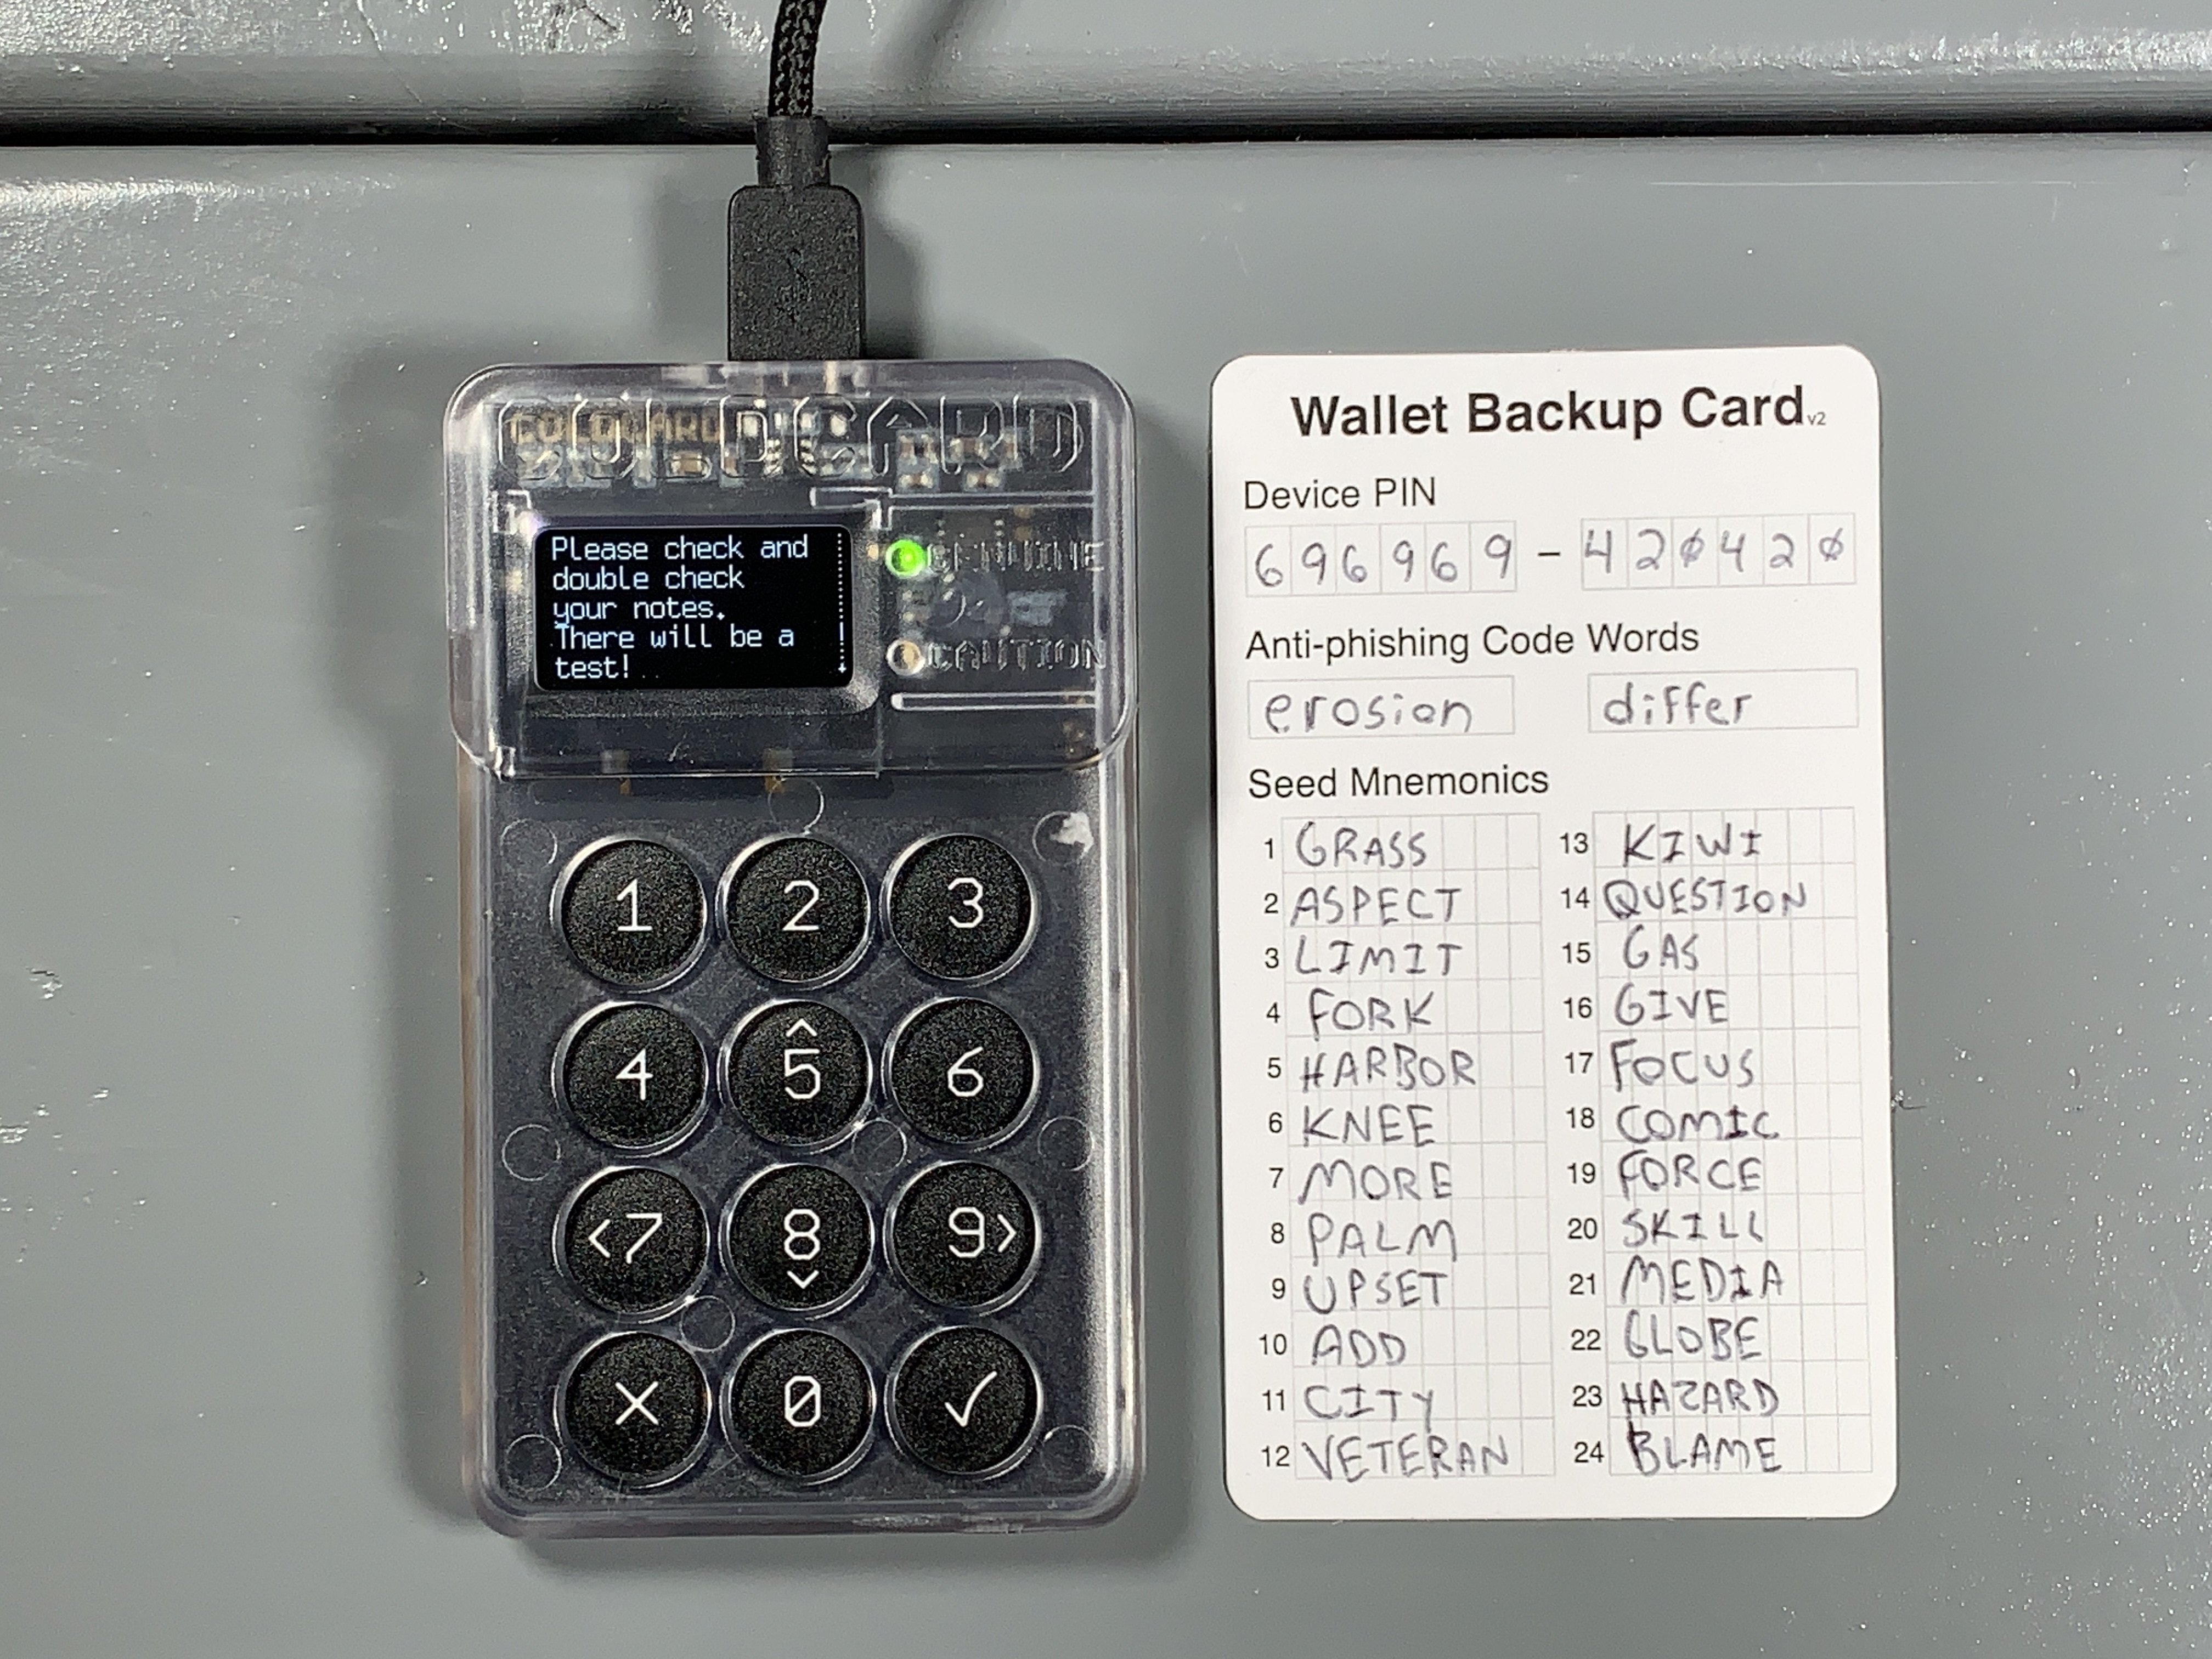 COLDCARD
Please check and
double check
your notes.
There will be a
test!
GENUINE
CAUTION
1 2 3
4 5 6
<7 8 9>
× 0 ✓
Wallet Backup Card v2
Device PIN
696969 - 420420
Anti-phishing Code Words
erosion differ
Seed Mnemonics
1 GRASS
2 ASPECT
3 LIMIT
4 FORK
5 HARBOR
6 KNEE
7 MORE
8 PALM
9 UPSET
10 ADD
11 CITY
12 VETERAN
13 KIWI
14 QUESTION
15 GAS
16 GIVE
17 FOCUS
18 COMIC
19 FORCE
20 SKILL
21 MEDIA
22 GLOBE
23 HAZARD
24 BLAME